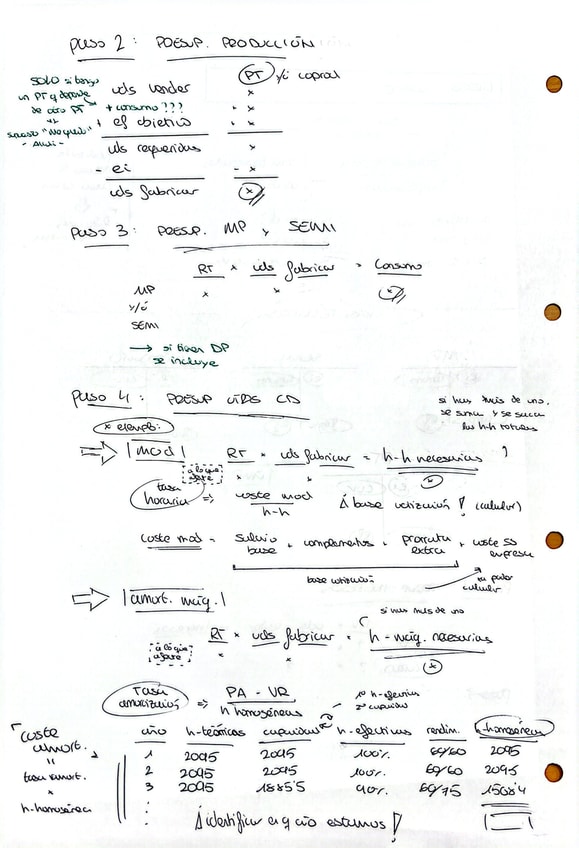 Paso 2: PRESUP. PRODUCCIÓN
PT y/ó coprod
SOLO si tengo
un PT q depende
de otro PT
uds vender x
+ consumo???
+ ef objetivo + x
uds requeridas x
- ei - x
uds fabricar x
Paso 3: PRESUP. MP y SEMI
RT x uds fabricar = Consumo
MP x x x
y/ó
SEMI
→ si tienen DP
se incluye
Paso 4: PRESUP OTROS CD
si hay más de uno,
se suma y se saca
las h-h totales
* ejemplo:
⇒ |mod| RT x uds fabricar = h-h necesarias
a lo que
afecte
x x x
tasa
horaria ⇒ coste mod
h-h
¡base cotización! (calcular)
coste mod = salario
base + complementos + prorrata
extra + coste SS
empresa
base cotización
para poder
calcular
⇒ |amort. máq.|
si hay más de uno
RT x uds fabricar = h-máq. necesarias
a lo que
afecte
x x x
Tasa
amortización ⇒ PA - VR
h homogéneas
1º h-efectivas
2º capacidad
coste
amort.
=
tasa amort.
x
h-homogéneas
año h-teóricas capacidad h-efectivas rendim. h-homogéneas
1 2095 2095 100% 60/60 2095
2 2095 2095 100% 60/60 2095
3 2095 1885'5 90% 60/75 1508'4
¡identificar en q año estamos!